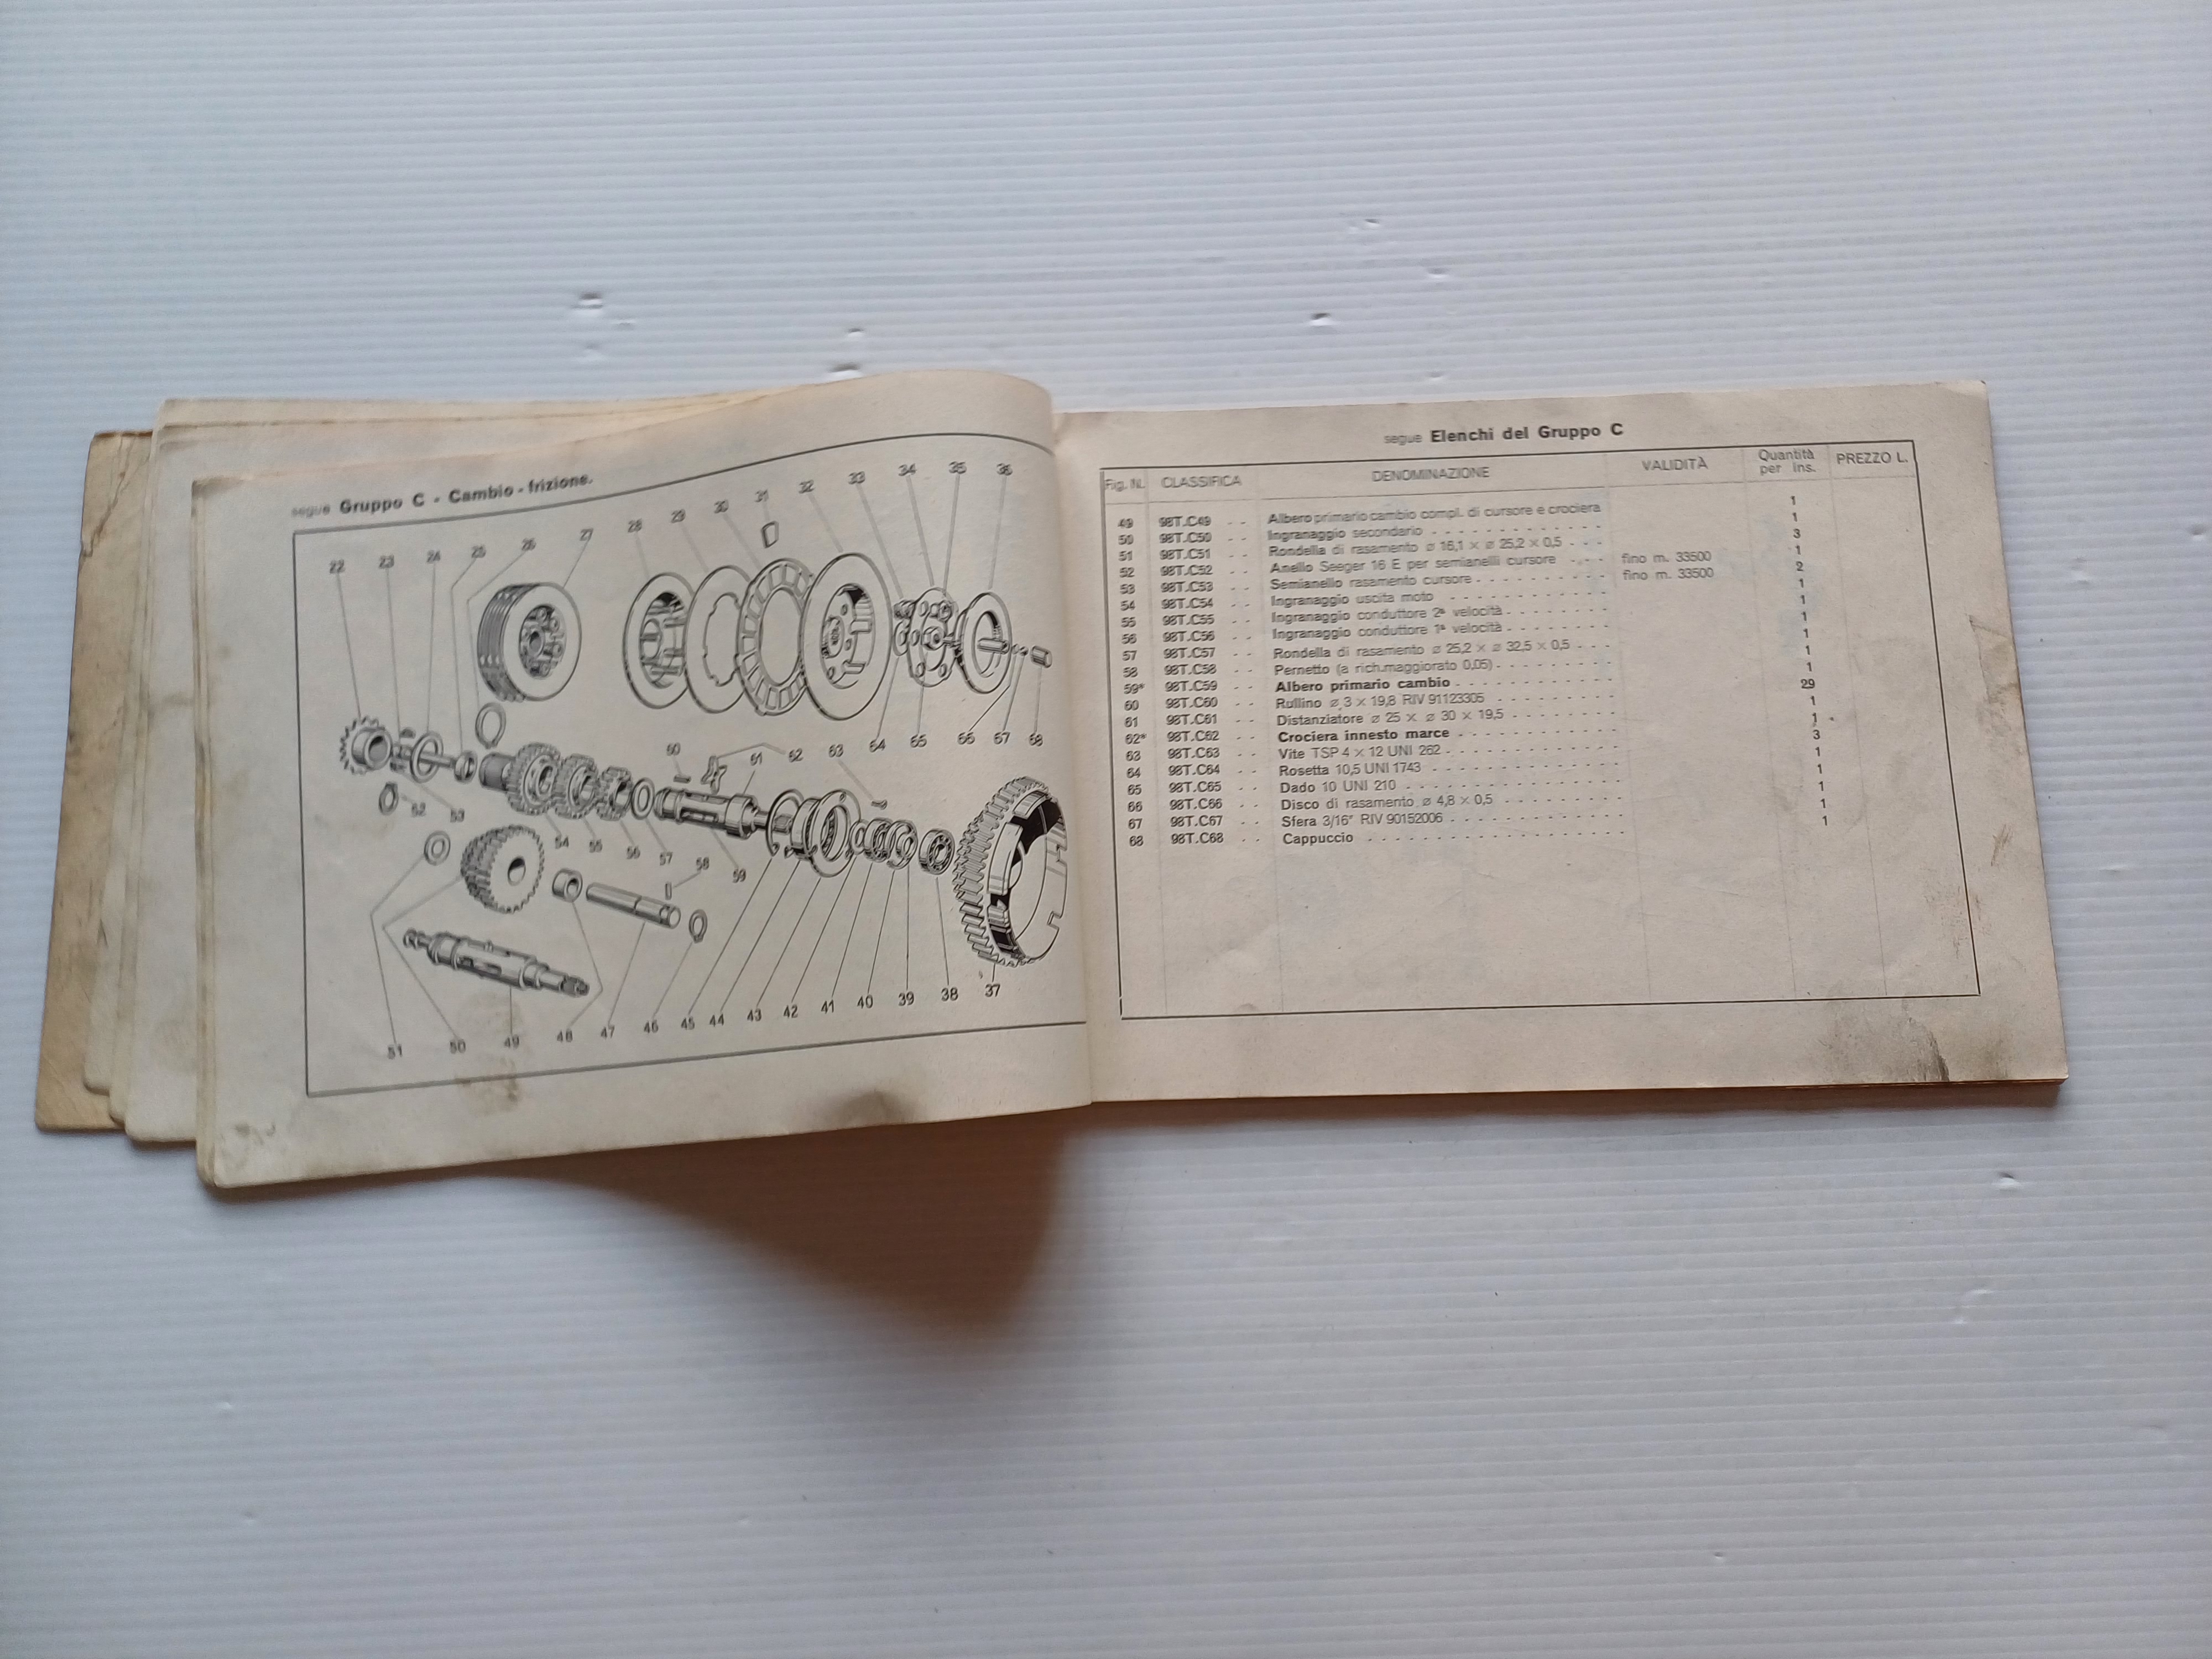 segue Gruppo C - Cambio - frizione.
22 23 24 25 26 27 28 29 30 31 32 33 34 35 36
60 62 63 64 65 66 67 68
61
52 53 54 55 56 57 58 59
51 50 49 48 47 46 45 44 43 42 41 40 39 38 37
segue Elenchi del Gruppo C
Fig. N. CLASSIFICA DENOMINAZIONE VALIDITÀ Quantità per ins. PREZZO L.
49 98T.C49 - - Albero primario cambio compl. di cursore e crociera 1
50 98T.C50 - - Ingranaggio secondario - - - - - - - - - - - 1
51 98T.C51 - - Rondella di rasamento ø 16,1 × ø 25,2 × 0,5 - - - 3
52 98T.C52 - - Anello Seeger 16 E per semianelli cursore - - - fino m. 33500 1
53 98T.C53 - - Semianello rasamento cursore - - - - - - - - fino m. 33500 2
54 98T.C54 - - Ingranaggio uscita moto - - - - - - - - - - 1
55 98T.C55 - - Ingranaggio conduttore 2ª velocità - - - - - - - 1
56 98T.C56 - - Ingranaggio conduttore 1ª velocità - - - - - - - 1
57 98T.C57 - - Rondella di rasamento ø 25,2 × ø 32,5 × 0,5 - - - 1
58 98T.C58 - - Pernetto (a rich.maggiorato 0,05) - - - - - - - 1
59* 98T.C59 - - Albero primario cambio - - - - - - - - - - 1
60 98T.C60 - - Rullino ø 3 × 19,8 RIV 91123305 - - - - - - - 29
61 98T.C61 - - Distanziatore ø 25 × ø 30 × 19,5 - - - - - - - 1
62* 98T.C62 - - Crociera innesto marce - - - - - - - - - - 1
63 98T.C63 - - Vite TSP 4 × 12 UNI 262 - - - - - - - - - - 3
64 98T.C64 - - Rosetta 10,5 UNI 1743 - - - - - - - - - - - 1
65 98T.C65 - - Dado 10 UNI 210 - - - - - - - - - - - - - 1
66 98T.C66 - - Disco di rasamento ø 4,8 × 0,5 - - - - - - - - 1
67 98T.C67 - - Sfera 3/16" RIV 90152006 - - - - - - - - - - 1
68 98T.C68 - - Cappuccio - - - - - - - - - - - - - - - 1